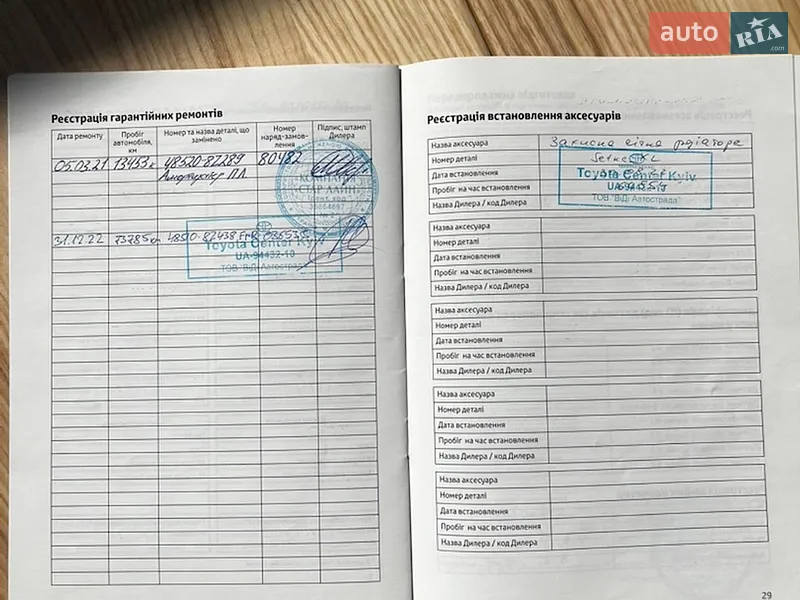 auto RIA.com
Реєстрація гарантійних ремонтів
Дата ремонту
Пробіг автомобіля, км
Номер та назва деталі, що замінено
Номер наряд-замов-лення
Підпис, штамп Дилера
05.03.21 13453 48520-82289 80482
Амортизатор П.Л.
КОМПАНІЯ
СТАР ЛАЙН
31.12.22 73785 км
Toyota Center Kyiv
UA-94432-10
ТОВ "ВіДі Автострада"
Реєстрація встановлення аксесуарів
Назва аксесуара Захисна сітка радіатора
Номер деталі
Дата встановлення
Пробіг на час встановлення
Назва Дилера / код Дилера
Toyota Center Kyiv
UA-94432-10
ТОВ "ВіДі Автострада"
Назва аксесуара
Номер деталі
Дата встановлення
Пробіг на час встановлення
Назва Дилера / код Дилера
Назва аксесуара
Номер деталі
Дата встановлення
Пробіг на час встановлення
Назва Дилера / код Дилера
Назва аксесуара
Номер деталі
Дата встановлення
Пробіг на час встановлення
Назва Дилера / код Дилера
Назва аксесуара
Номер деталі
Дата встановлення
Пробіг на час встановлення
Назва Дилера / код Дилера
29